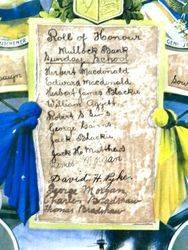 Roll of Honour
Mullock Bank
Sunday School
Herbert Macdonald
Edward Macdonald
Herbert James Blackie
William
Robert S.
George
Jack Blackie
Jack H. Matthews
Morgan
David H. Pyke
George Morgan
Charles Bradshaw
Thomas Bradshaw